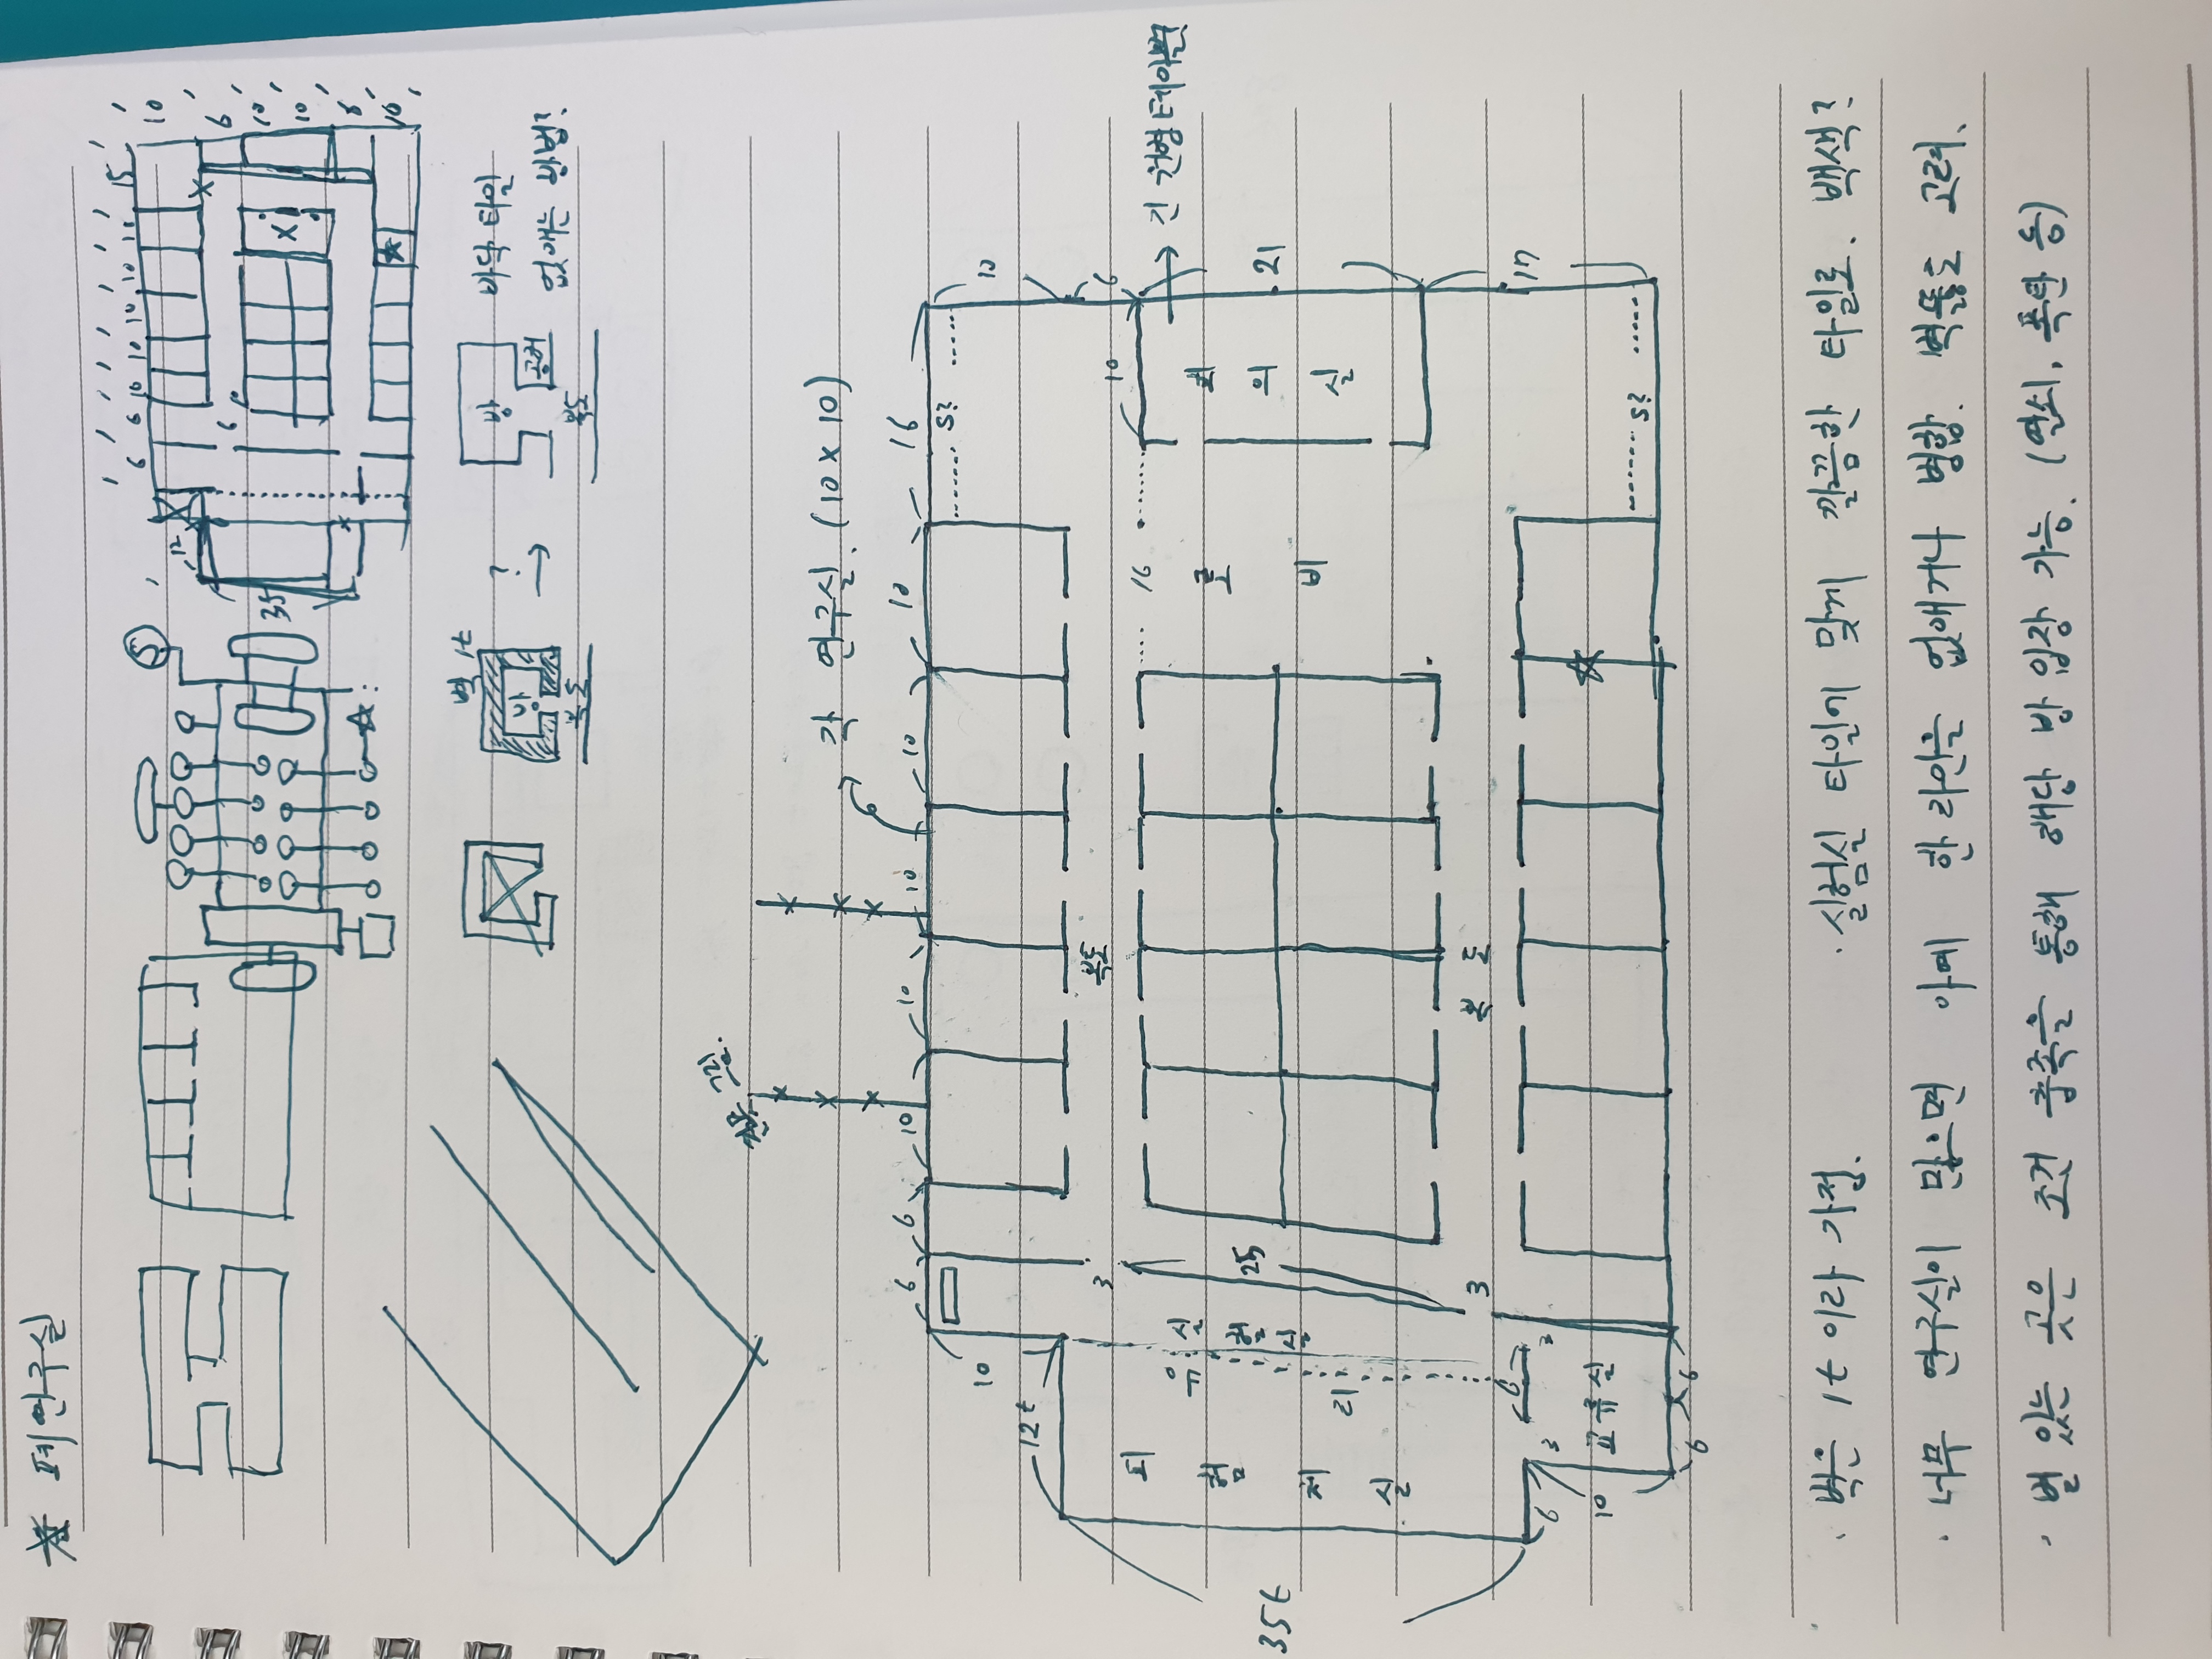 폐연구실
S
6 6 10 10 10 10 10 15
12
10
35
6
6
10
X
10
8
10
벽 1t
방
복도
?
방
공허
복도
바닥 타일
없애는 방법?
그림.
각 연구실. (10 x 10)
6 6 10 10 10 10 10 16
S?
10
10
12t
3
복도
6
10
16
긴 원형 테이블?
피험체실
유리
실험실
25
로비
회의실
35t
21
3
복도
6
6 3 3
17
10
교류실
S?
6 6
· 벽은 1t 이라 가정.
· 실험실 타일에 맞게 깔끔한 타일로. 백색?
· 너무 연구실이 많으면 아예 한 라인을 없애거나 병합. 벽뚫도 고려.
· 별 있는 곳은 조건 충족을 통해 해당 방 입장 가능. (열쇠, 폭탄 등)